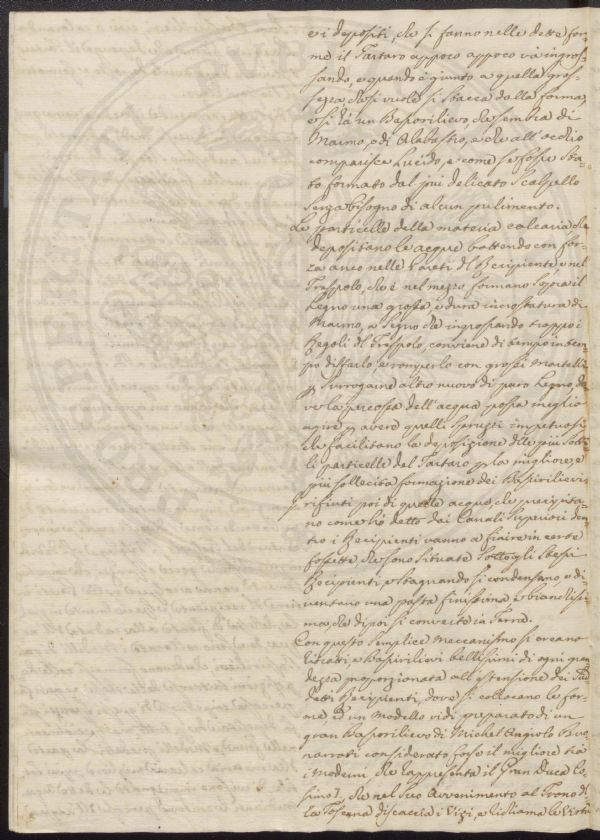 e i depositi, che si fanno nelle dette for=
me il Tartaro appoco appoco và ingros=
sando, e quando è giunto a quella gros=
sezza, che si vuole si stacca dalla forma,
e si hà un Bassorilievo, che sembra di
Marmo, o di Alabastro, e che all'occhio
comparisce Lucido, e come se fosse sta=
to formato dal più delicato Scalpello
senza bisogno di alcun pulimento.
Le particelle della materia calcaria che
depositano le acque battendo con for=
za anco nelle Pareti del Recipiente, e nel
Trespolo, che è nel mezzo, formano sopra il
Legno una grossa, e dura incrostatura di
Marmo, a segno che ingrossando troppo i
Regoli del Trespolo, conviene di tempo in tem=
po disfarlo, e romperlo con grossi Martelli
p surrogarne altro nuovo di puro Legno, do
ve la percossa dell'acqua possa meglio
agire p avere quelli spruzzi impetuosi,
che facilitano la deposizione delle più sotti
li particelle del Tartaro p la migliore, e
più sollecita formazione dei Bassirilievi
I rifiuti poi di queste acque, che precipita=
no come hò detto dai Canali Superiori den
tro i Recipienti vanno a finire in certe
fossette, che sono situate sotto gli stessi
Recipienti, e stagnando si condensano, e di=
ventano una pasta finissima, e bianchissi
ma, che di poi si converte in Terra.
Con questo semplice meccanismo si creano
Ritratti, e Bassirilievi bellissimi di ogni gran
dezza proporzionata all'estensione dei Sud
detti Recipienti, dove si collocano le for=
me, ed un Modello vidi preparato di un
gran Bassorilievo di Michel Angiolo Buo
narroti considerato forse il migliore tra
i Moderni, che rappresenta il Gran Duca Co
simo I. che nel suo Avvenimento al Trono di
la Toscana discaccia i Vizi, e richiama le Virtù